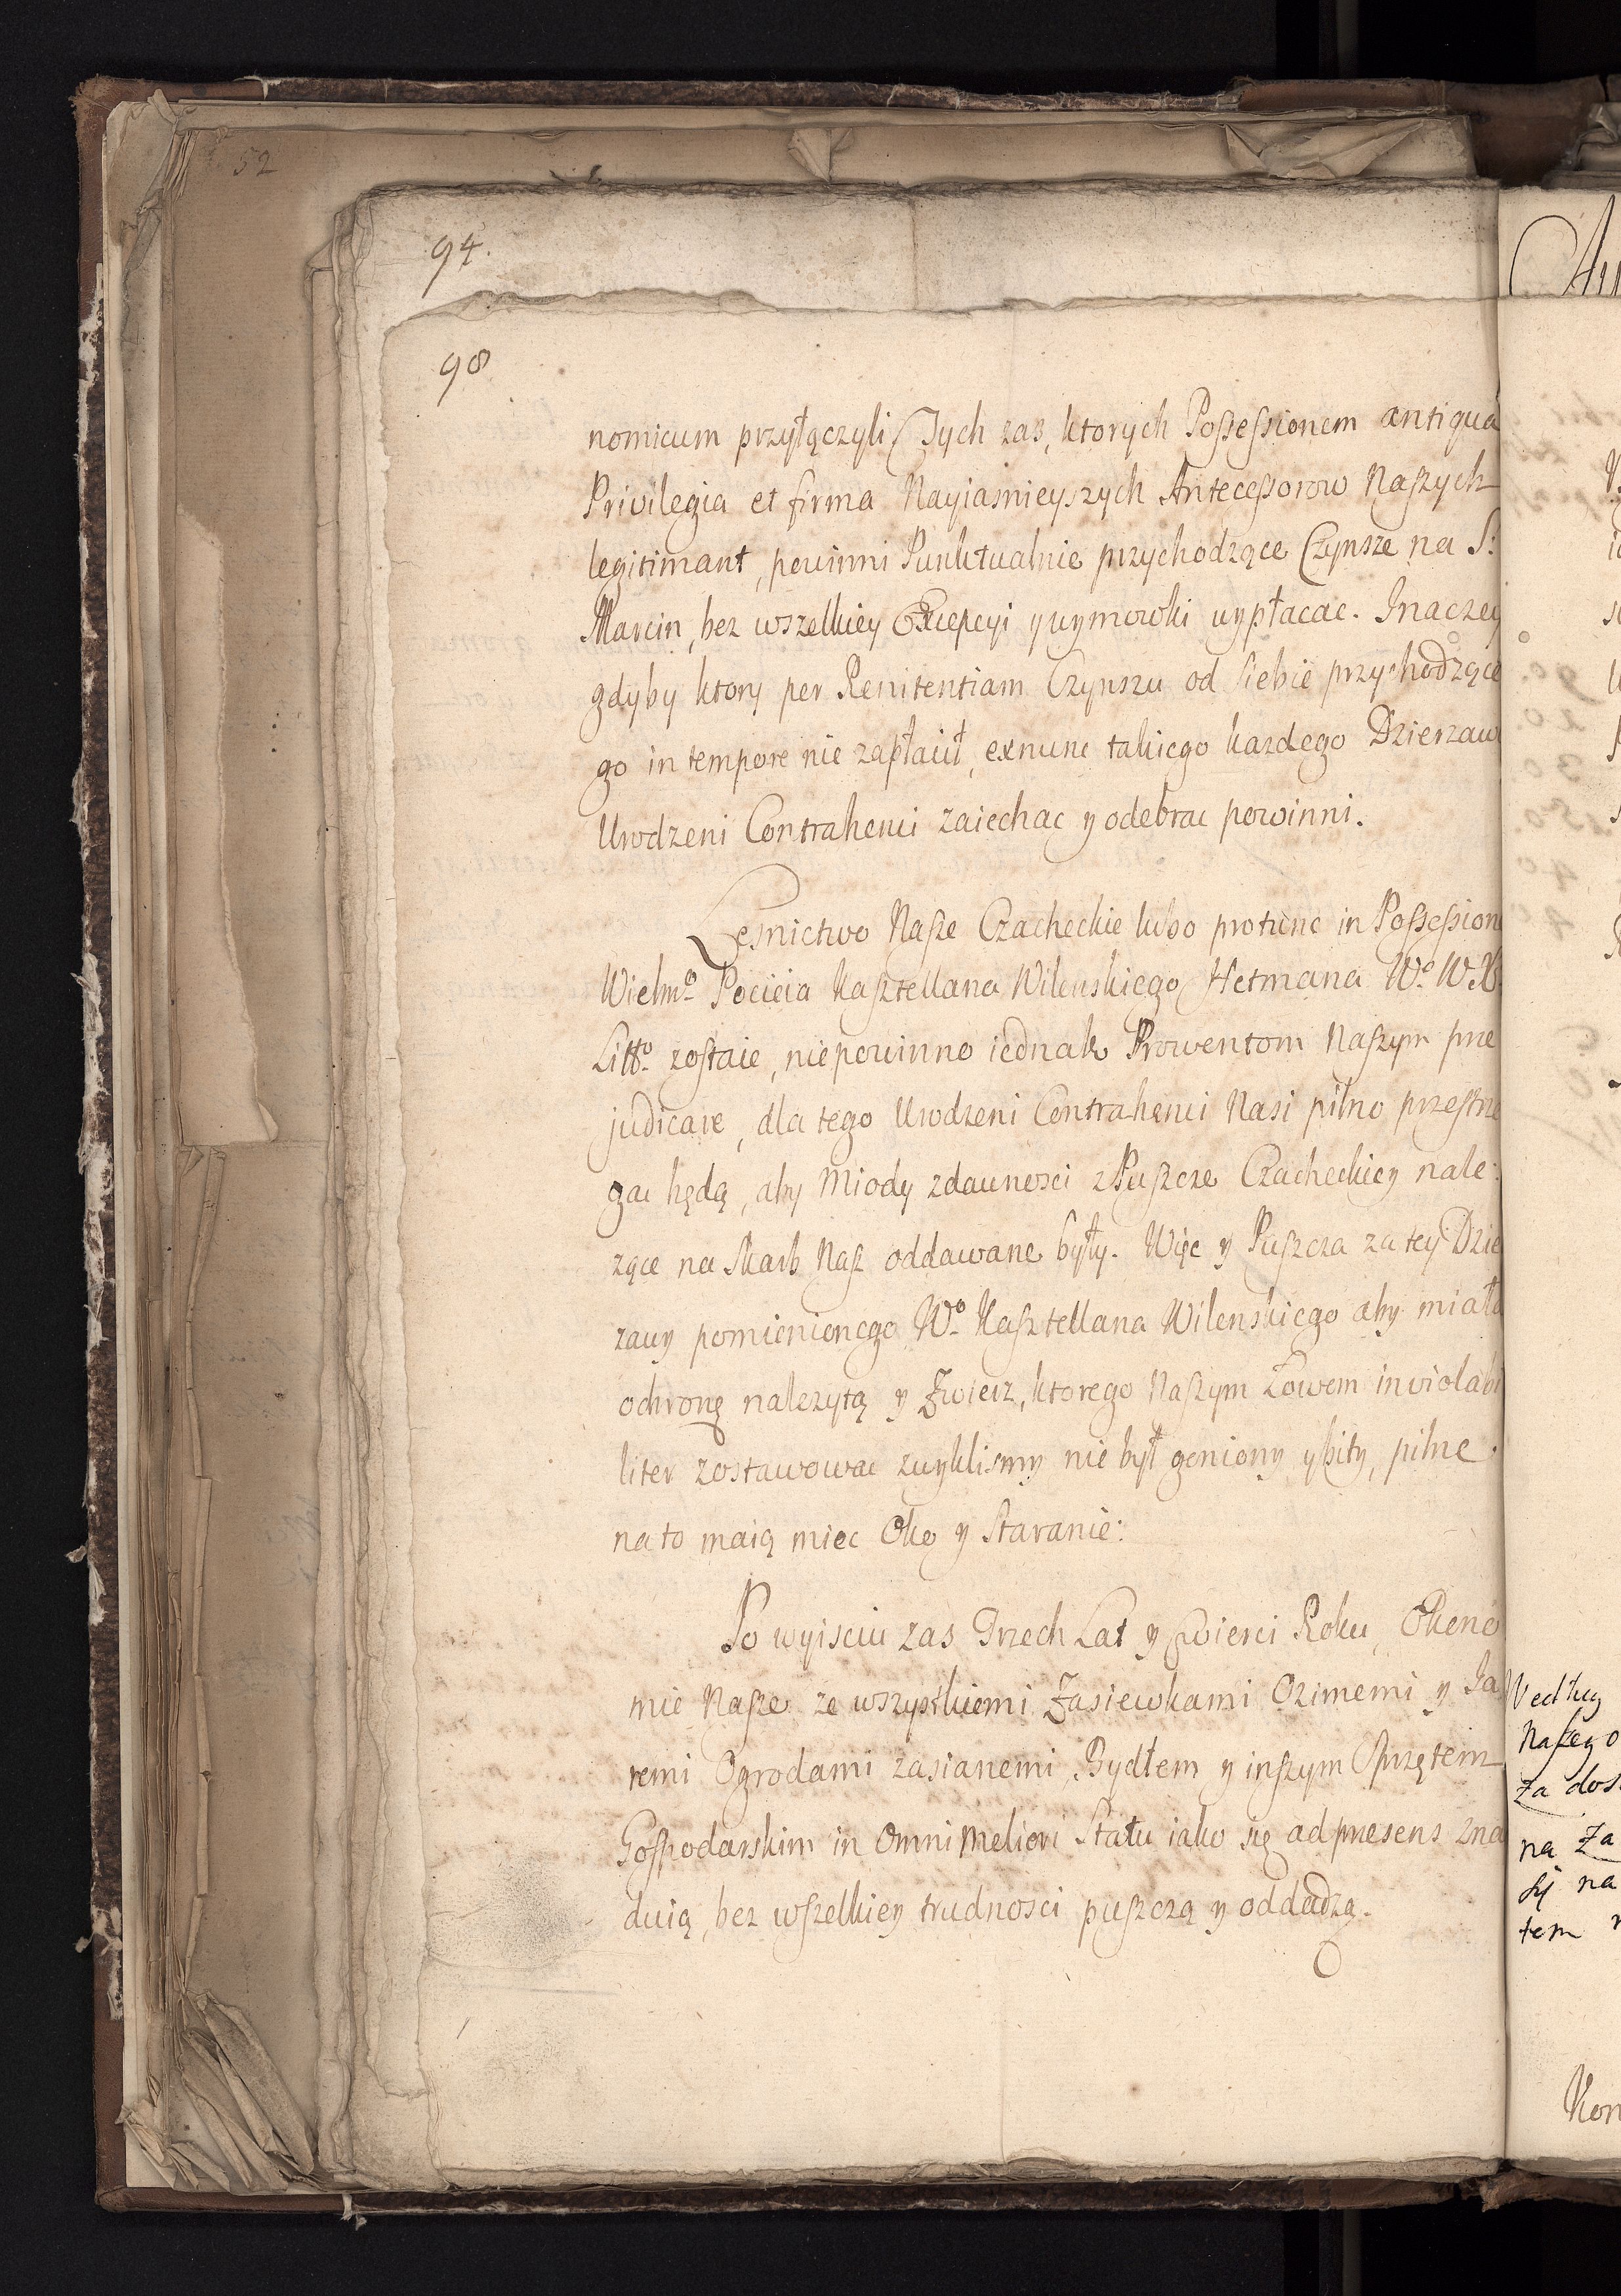 52
94.
98
nomicum przyłączyli, Tych zas, ktorych Possessionem antiqua
Privilegia et firma Nayiasnieyszych Antecessorow Naszych
legitimant, powinni Punktualnie przychodzące Czynsze na S:
Marcin, bez wszelkiey Excepcyi y wymowki wypłacac. Inaczey
gdyby ktory per Renitentiam Czynszu od siebie przychodzące
go in tempore nie zapłacił, exnunc takiego kazdego Dzierzaw
Urodzeni Contrahenci zaiechac y odebrac powinni.
Lesnictwo Nasze Czacheckie lubo protunc in Possession
Wielmo Pocieia Kasztellana Wilenskiego Hetmana Wo W. X.
Litto zostaie, niepowinno iednak Prowentom Naszym pre
judicare, dla tego Urodzeni Contrahenci Nasi pilno przestrze
gac będą, aby Miody zdawnosci z Puszcze Czacheckiey nale:
zące na Skarb Nasz oddawane były. Więc y Puszcza za tey Dzie
zawy pomienionego Wo Kasztellana Wilenskiego aby miała
ochronę nalezytą y Zwierz, ktorego Naszym Łowem inviolabi
liter zostawowac zwyklismy nie był goniony y bity, pilne
na to maią miec Oko y Staranie:
Po wyisciu zas Trzech Lat y cwierci Roku, Okono
mie Nasze ze wszystkiemi Zasiewkami Ozimemi y Ja
remi Ogrodami zasianemi, Bydłem y inszym Sprzętem
Gospodarskim in Omni Meliori Statu iako się ad presens zna
duią, bez wszelkiey trudnosci puszczą y oddadzą.
Według
Naszego
za dos
na Za
sy na
tem
Kon